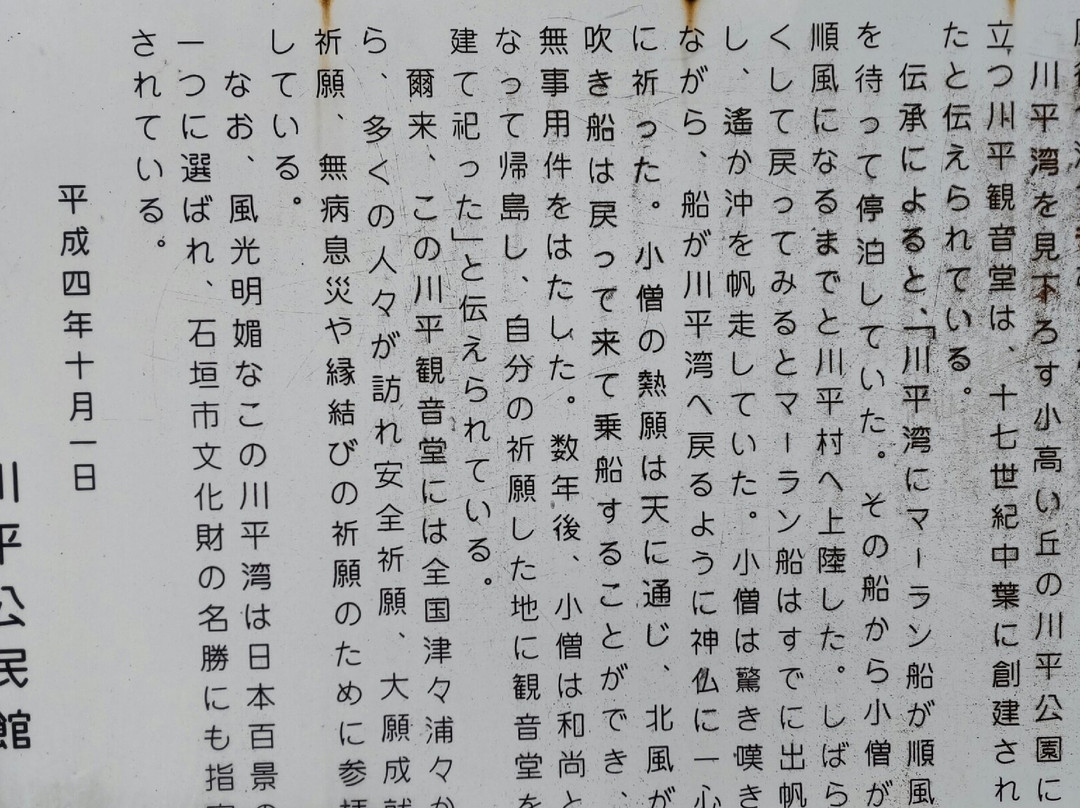 川平湾を見下ろす小高い丘の川平公園に
立つ川平観音堂は、十七世紀中葉に創建され
たと伝えられている。
伝承によると、「川平湾にマーラン船が順風
を待って停泊していた。その船から小僧が
順風になるまでと川平村へ上陸した。しばら
くして戻ってみるとマーラン船はすでに出帆
し、遙か沖を帆走していた。小僧は驚き嘆き
ながら、船が川平湾へ戻るように神仏に一心
に祈った。小僧の熱願は天に通じ、北風が
吹き船は戻って来て乗船することができ、
無事用件をはたした。数年後、小僧は和尚と
なって帰島し、自分の祈願した地に観音堂を
建て祀った」と伝えられている。
爾来、この川平観音堂には全国津々浦々か
ら、多くの人々が訪れ安全祈願、大願成就
祈願、無病息災や縁結びの祈願のために参拝
している。
なお、風光明媚なこの川平湾は日本百景の
一つに選ばれ、石垣市文化財の名勝にも指定
されている。
平成四年十月一日
川平公民館